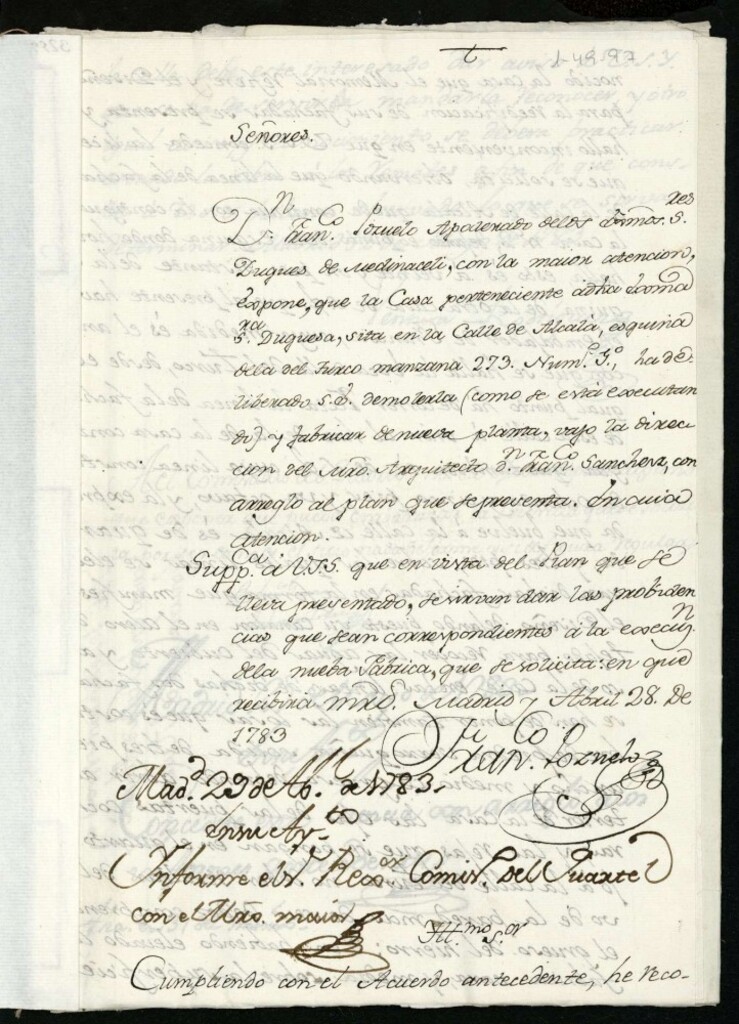 1-49-87
Señores.
D.n Fran.co Pozuelo Apoderado delos Exmos. S.res
Duques de Medinaceli, con la maior atencion,
expone, que la Casa perteneciente adha Exma
S.ra Duquesa, sita en la Calle de Alcalá, esquina
ála del Turco manzana 273. Num.o
liberado S.E. demolerla (como se está executan
do) y fabricar denueva planta, vajo la direc-
cion del Mro. Arquitecto D.n Fran.co Sanchez, con
arreglo al plan que se presenta. En cuia
atencion.
Supp.ca á V.S.S. que en vista del Plan que se
lleva presentado, se sirvan dar las probiden
cias que sean correspondientes á la execu.n
dela nueba Fabrica, que se solicita: en que
recibirá mrd. Madrid y Abril 28. De
1783
Fran.co Pozuelo
Mad.d 29 de Ab.l de 1783.
En su Ay.to
Informe el S.r Reg.or Comis.o del Quartel
con el Mro. maior
Ill.mo S.or
Cumpliendo con el Acuerdo antecedente, he reco-